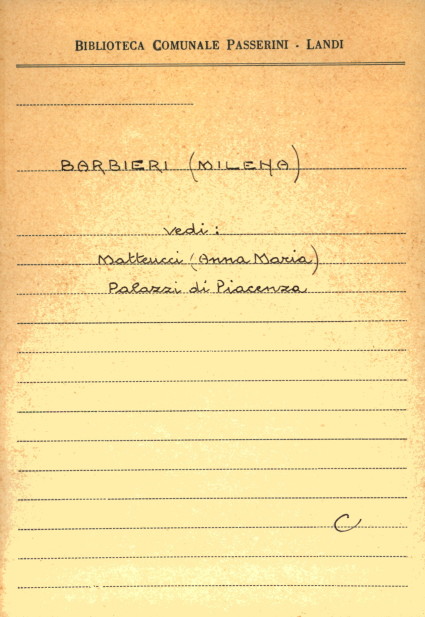 BIBLIOTECA COMUNALE PASSERINI - LANDI
BARBIERI (MILENA)
vedi:
Matteucci (Anna Maria)
Palazzi di Piacenza
C